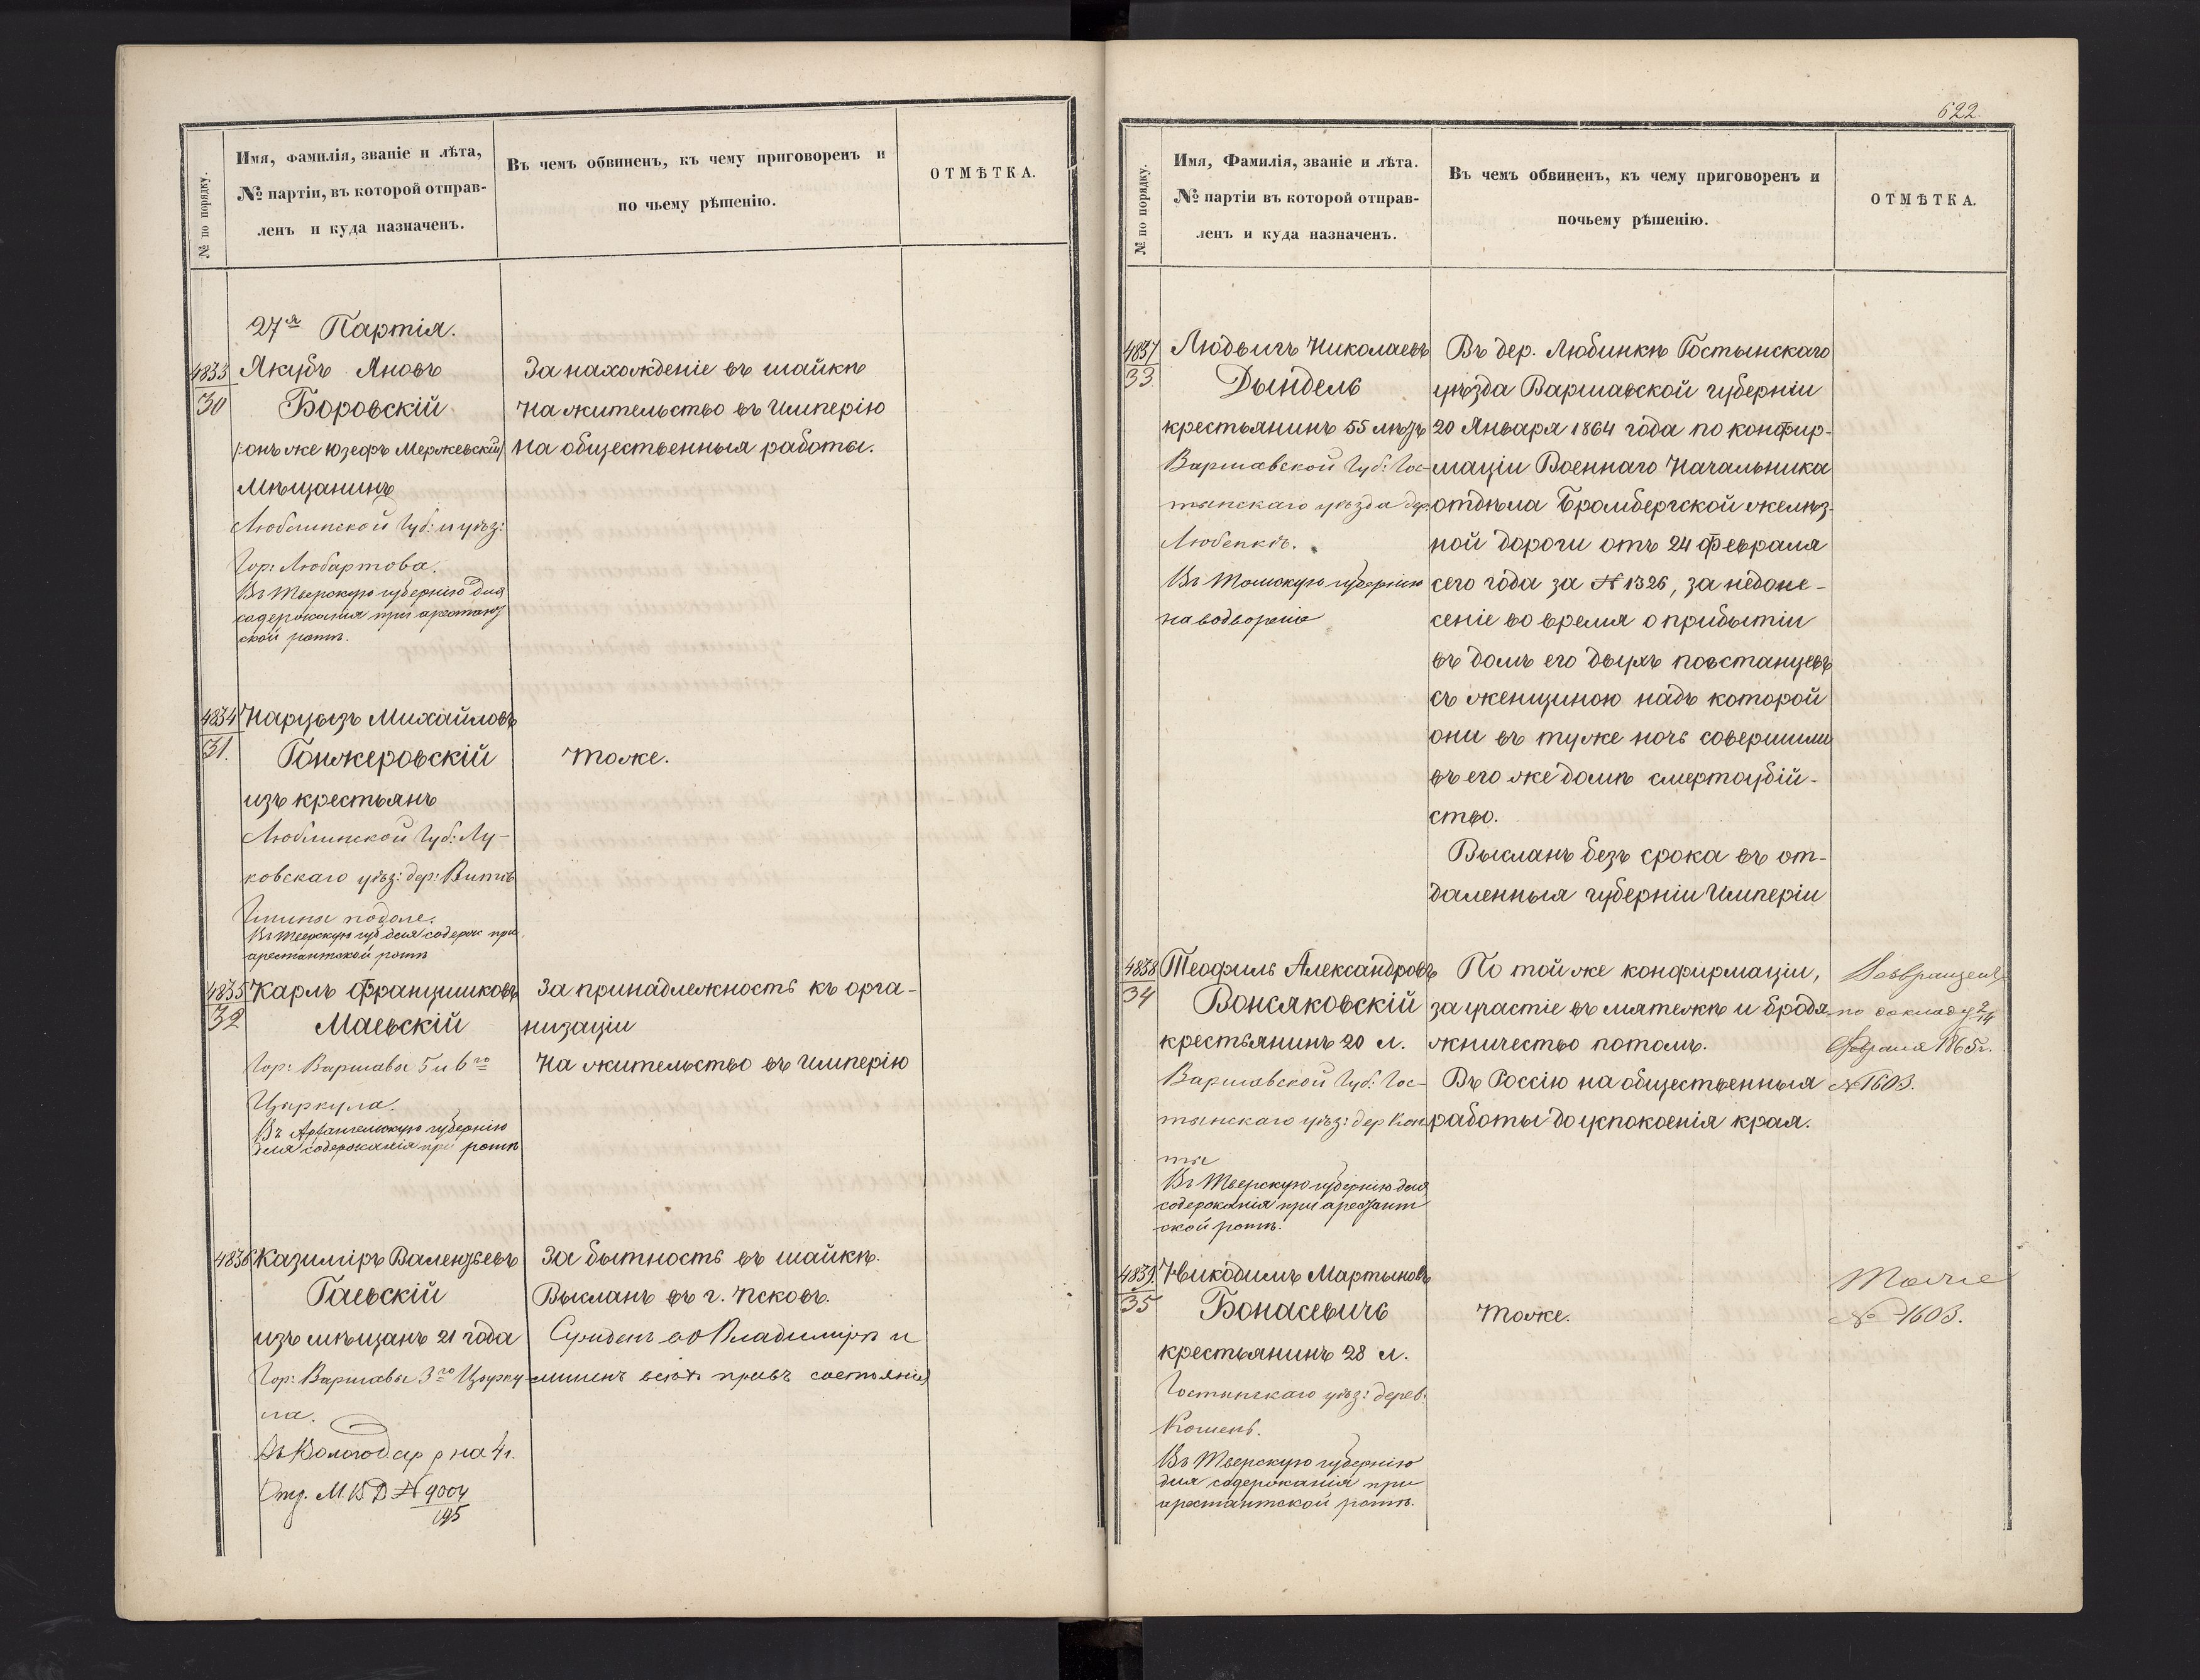 № по порядку.
Имя, фамилія, званіе и лѣта,
№ партіи, въ которой отправ-
ленъ и куда назначенъ.
Въ чемъ обвиненъ, къ чему приговоренъ и
по чьему рѣшенію.
ОТМѢТКА.
27я Партія.
4833
30
Якубъ Яновъ
Боровскій
/:онъ же Юзефъ Мержевскій/
Мѣщанинъ
Люблинской Губ: и уѣз:
Гор: Любартова.
Въ Тверскую губернію для
содержанія при арестант
ской ротѣ.
За нахожденіе въ шайкѣ
На жительство въ Имперію
на общественныя работы.
4834
31.
Нарцызъ Михайловъ
Гонжеровскій
изъ крестьянъ
Люблинской Губ: Лу-
ковскаго уѣз: дер: Витовъ
Гмины подоле.
Въ Тверскую губ для содерж при
арестантской ротѣ
Тоже.
4835
32
Карлъ Францишковъ
Маевскій
Гор: Варшавы 5 и 6го
Цыркула.
Въ Архангельскую губернію
для содержанія при ротѣ
За принадлежность къ орга-
низаціи
На жительство въ Имперію
4836
Казиміръ Валентьевъ
Гаевскій
изъ мѣщанъ 21 года
Гор: Варшавы 3го Цырку-
ла.
Въ Вологод. ар р на 4 г.
М. В. Д № 9004
195
За бытность въ шайкѣ.
Высланъ въ г. Псковъ.
Сужденъ во Владимірѣ и
лишенъ всѣхъ правъ состоянія
622.
№ по порядку.
Имя, Фамилія, званіе и лѣта.
№ партіи въ которой отправ-
ленъ и куда назначенъ.
Въ чемъ обвиненъ, къ чему приговоренъ и
почьему рѣшенію.
ОТМѢТКА.
4837
33
Людвигъ Николаевъ
Дындель
крестьянинъ 55 лѣтъ
Варшавской Губ: Гос-
тынскаго уѣзда дер.
Любенкѣ.
Въ Томскую губернію
на водвореніе
Въ дер. Любинкѣ Гостынскаго
уѣзда Варшавской губерніи
20 Января 1864 года по конфир-
маціи Военнаго Начальника
отдѣла Бромбергской желѣз-
ной дороги отъ 24 февраля
сего года за № 1326, за недоне-
сеніе во время о прибытіи
въ домъ его двухъ повстанцевъ
съ женщиною надъ которой
они въ туже ночь совершили
въ его же домѣ смертоубій-
ство.
Высланъ безъ срока въ от-
даленныя губерніи Имперіи
4838
34
Теофиль Александровъ
Вонсяковскій
крестьянинъ 20 л.
Варшавской Губ: Гос-
тынскаго уѣз: дер Кон
ты
Въ Тверскую губернію для
содержанія при арестант
ской ротѣ.
По той же конфирмаціи,
за участіе въ мятежѣ и бродя-
жничество потомъ.
Въ Россію на общественныя
работы до успокоенія края.
Возвращенъ
по докладу 2/14
Февраля 1865 г.
№ 1603.
4839.
35
Никодимъ Мартыновъ
Бонасевичъ
крестьянинъ 28 л.
Гостынскаго уѣз: дерев:
Кошенъ.
Въ Тверскую губернію
для содержанія при
арестантской ротѣ.
Тоже.
Тоже
№ 1603.